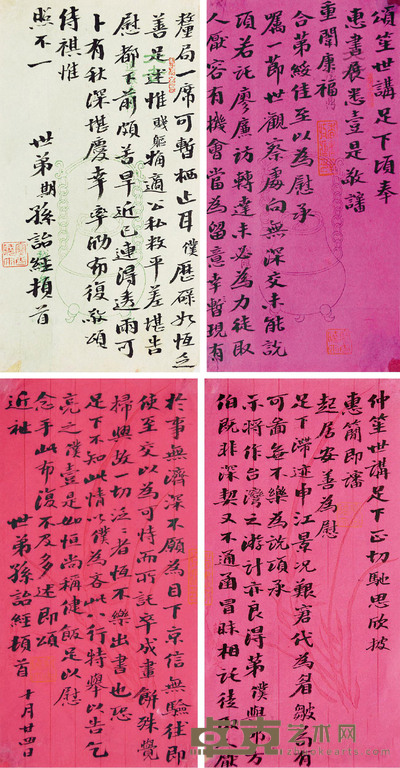 頌笙世講足下頃奉
惠書展悉壹是敬諗
重闈康福
合第綏佳至以為慰承
屬一節世觀察處向無深交未能說
項若託廖廉訪轉達未必為力徒取
人厭容有機會當為留意幸暫現有
釐局一席可暫栖止耳僕歷碌如恆乏
善足述惟賤軀粗適公私敉平差堪告
慰都下前頗苦旱近已連得透雨可
卜有秋深堪慶幸手肋布復敬頌
侍祺惟
照不一
世弟期孫詒經頓首
仲笙世講足下正切馳思欣披
惠簡即諗
起居安善為慰
足下滯迹申江景況艱窘代為眉皺局有
可圖無不樂為說項承
示將作台灣之游計亦良得第僕與方
伯既非深契又不通函冒昧相託徒取厭
於事無濟深不願為目下京信無驗往即
使至交以為可恃而所託卒成畫餅殊覺
掃興故一切泛者恆不樂出書也恐
足下不知此情以僕為吝此八行特舉以告乞
亮之僕壹是如恒尚稱健飯足以慰
念手此布復不及多述即頌
近祉 世弟孫詒經頓首 十月廿四
卓克艺术网